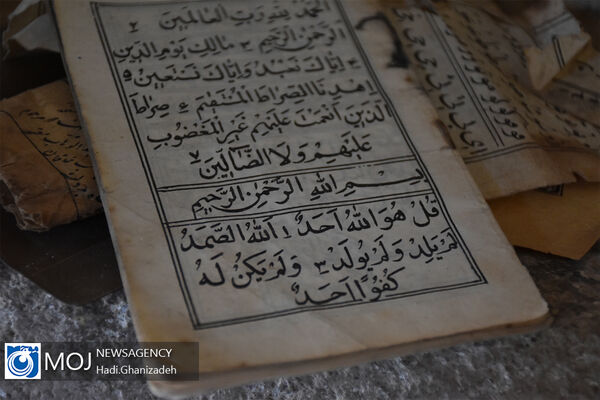 اَلْحَمْدُ لِلّٰهِ رَبِّ الْعَالَمينَ ۲
اَلرَّحْمٰنِ الرَّحيمِ ۳ مَالِكِ يَوْمِ الدّينِ
۴ اِيَّاكَ نَعْبُدُ وَاِيَّاكَ نَسْتَعينُ ۵
اِهْدِنَا الصِّرَاطَ الْمُسْتَقيمَ ۶ صِرَاطَ
الَّذينَ اَنْعَمْتَ عَلَيْهِمْ غَيْرِ الْمَغْضُوبِ
عَلَيْهِمْ وَلَا الضَّالّينَ ۷
بِسْمِ اللهِ الرَّحْمٰنِ الرَّحيمِ
قُلْ هُوَ اللهُ اَحَدٌ ۱ اَللهُ الصَّمَدُ
لَمْ يَلِدْ وَلَمْ يُولَدْ ۳ وَلَمْ يَكُنْ لَهُ
كُفُوًا اَحَدٌ
MOJ NEWSAGENCY
Hadi.Ghanizadeh